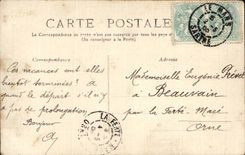 CARTE POSTALE
La Correspondance au recto n'est pas
acceptée par tous les pays étrangers
(Se renseigner à la Poste)
CORRESPONDANCE
ADRESSE
LE MANS
SARTHE
Ces vacances sont elles
bientôt terminées? à
quand le départ s'il n'y a
pas de prolongation.
Bonjour
Mademoiselle Eugénie
à Beauvain
par la Ferté-Macé
Orne
LA FERTÉ